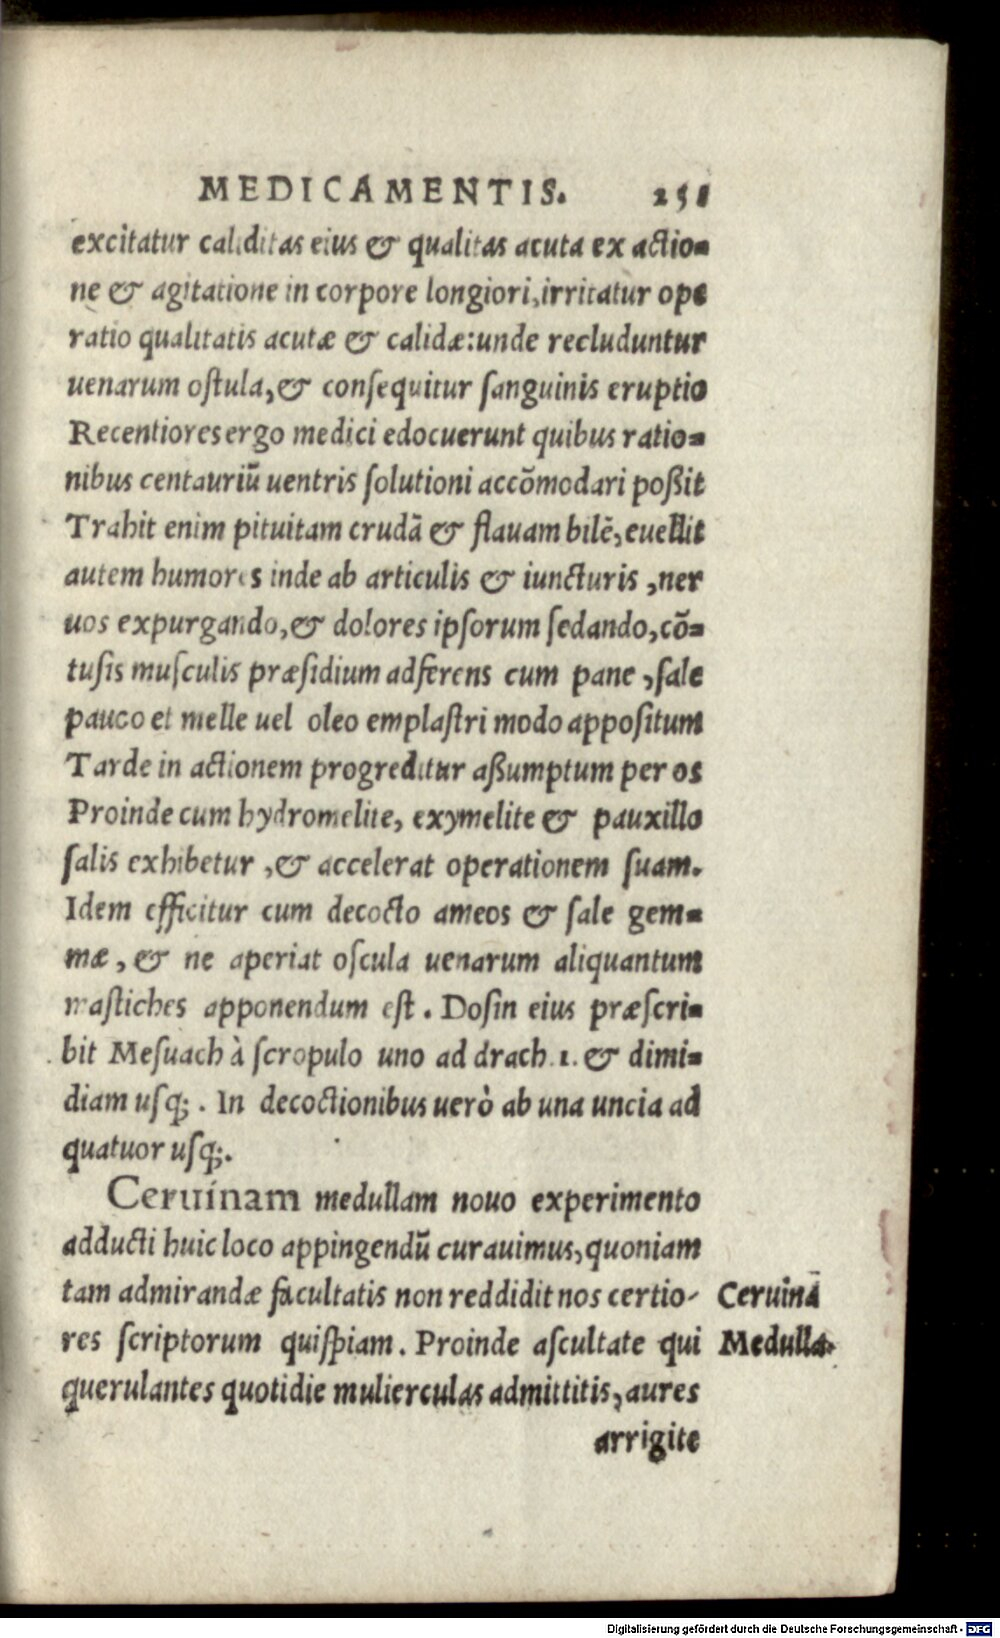 MEDICAMENTIS. 251
excitatur caliditas eius & qualitas acuta ex actio=
ne & agitatione in corpore longiori, irritatur ope
ratio qualitatis acutæ & calidæ: unde recluduntur
uenarum oſtula, & conſequitur ſanguinis eruptio
Recentiores ergo medici edocuerunt quibus ratio=
nibus centauriū uentris ſolutioni accōmodari poßit
Trahit enim pituitam crudā & flauam bilē, euellit
autem humores inde ab articulis & iuncturis, ner
uos expurgando, & dolores ipſorum ſedando, cō=
tuſis muſculis præſidium adferens cum pane, ſale
pauco et melle uel oleo emplaſtri modo appoſitum
Tarde in actionem progreditur aßumptum per os
Proinde cum hydromelite, exymelite & pauxillo
ſalis exhibetur, & accelerat operationem ſuam.
Idem efficitur cum decocto ameos & ſale gem=
mæ, & ne aperiat oſcula uenarum aliquantum
maſtiches apponendum eſt. Doſin eius præſcri=
bit Meſuach à ſcropulo uno ad drach. 1. & dimi=
diam uſq;. In decoctionibus uerò ab una uncia ad
quatuor uſq;.
Ceruinam medullam nouo experimento
adducti huic loco appingendū curauimus, quoniam
tam admirandæ facultatis non reddidit nos certio-
res ſcriptorum quiſpiam. Proinde aſcultate qui
querulantes quotidie mulierculas admittitis, aures
arrigite
Ceruinā
Medulla.
Digitalisierung gefördert durch die Deutsche Forschungsgemeinschaft - DFG